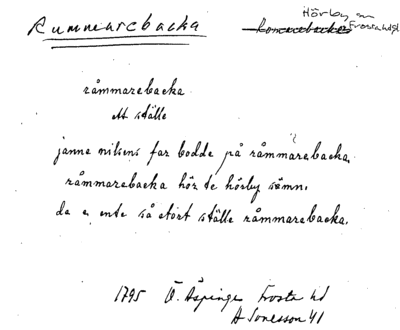 Rummarebacka
Hörby sn
Frosta hd
råmmarebacka
ett ställe
janne nilsens far bodde på råmmarebacka.
råmmarebacka hör te hörby sömn.
de e ente så stort ställe råmmarebacka.
1795 Ö. Äspinge Frosta hd
A Sonesson 41